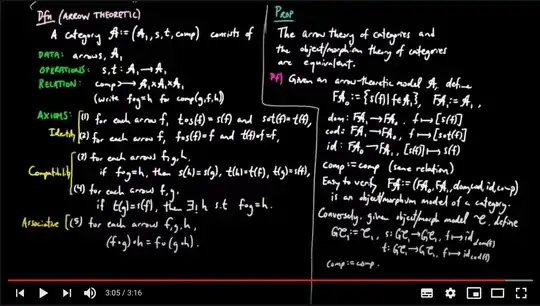 Dfn (ARROW THEORETIC)
A category 𝒜 := (𝒜₁, s, t, comp) consists of
DATA: arrows, 𝒜₁
OPERATIONS: s, t : 𝒜₁ → 𝒜₁
RELATION: comp ↣ 𝒜₁×𝒜₁×𝒜₁
(write f∘g=h for comp(g,f,h))
AXIOMS: (1) for each arrow f, t∘s(f) = s(f) and s∘t(f) = t(f).
Identity (2) for each arrow f, f∘s(f)=f and t(f)∘f=f,
(3) for each arrows f, g, h.
Compatibility if f∘g=h, then s(h)=s(g), t(h)=t(f), t(g)=s(f),
(4) for each arrow f, g.
if t(g)=s(f), then ∃! h s.t f∘g=h.
Associative (5) for each arrow f, g, h,
(f∘g)∘h = f∘(g∘h).
PROP
The arrow theory of categories and
the object/morphism theory of categories
are equivalent.
Pf) Given an arrow-theoretic model 𝒜, define
F𝒜₀ := {s(f) | f∈𝒜₁}, F𝒜₁ := 𝒜₁,
dom: F𝒜₁ → F𝒜₀, f ↦ [s(f)]
cod: F𝒜₁ → F𝒜₀, f ↦ [s∘t(f)]
id: F𝒜₀ → F𝒜₁, [s(f)] ↦ s(f)
comp := comp (same relation)
Easy to verify, F𝒜 := (F𝒜₀, F𝒜₁, dom, cod, id, comp)
is an object/morphism model of a category.
Conversely, given object/morph model 𝒞, define
G𝒞₁ := 𝒞₁, s: G𝒞₁ → G𝒞₁, f ↦ id_dom(f)
t: G𝒞₁ → G𝒞₁, f ↦ id_cod(f)
comp := comp.
3:05 / 3:16